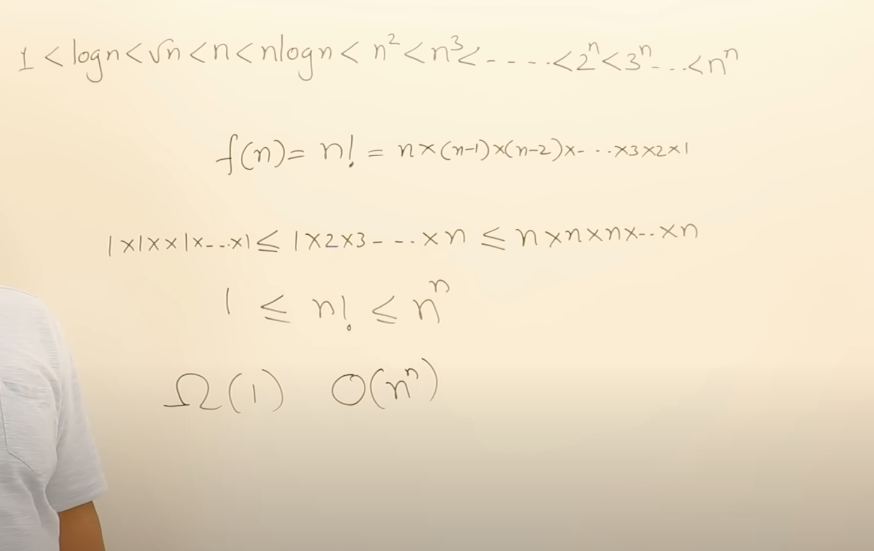 1 < logn < √n < n < nlogn < n² < n³ < - - - - . < 2ⁿ < 3ⁿ - . . < nⁿ
f(n) = n! = n×(n-1)×(n-2)×- - . . ×3×2×1
1×1××1×-..×1 ≤ 1×2×3 - - . . ×n ≤ n×n×n×-..×n
1 ≤ n! ≤ nⁿ
Ω(1) O(nⁿ)